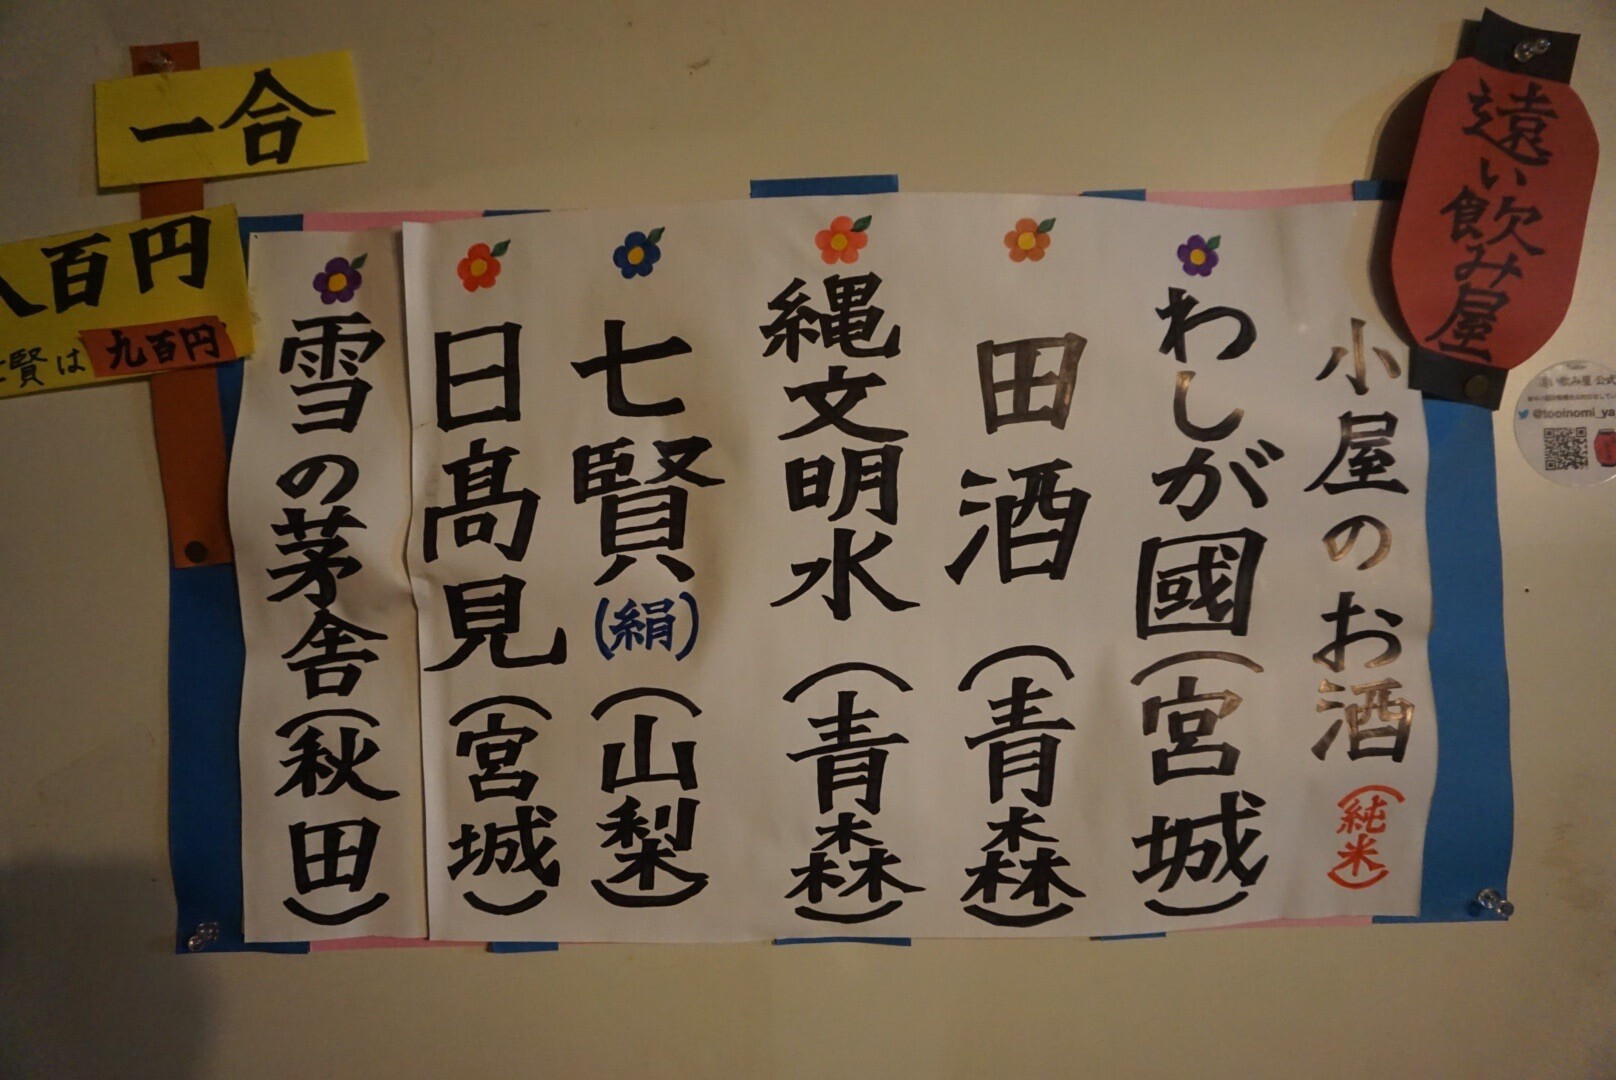 遠い飲み屋
小屋のお酒(純米)
わしが國(宮城)
田酒(青森)
縄文明水(青森)
七賢(絹)(山梨)
日髙見(宮城)
雪の茅舎(秋田)
一合
八百円
賢は 九百円
遠い飲み屋 公式
@tooinomi_ya